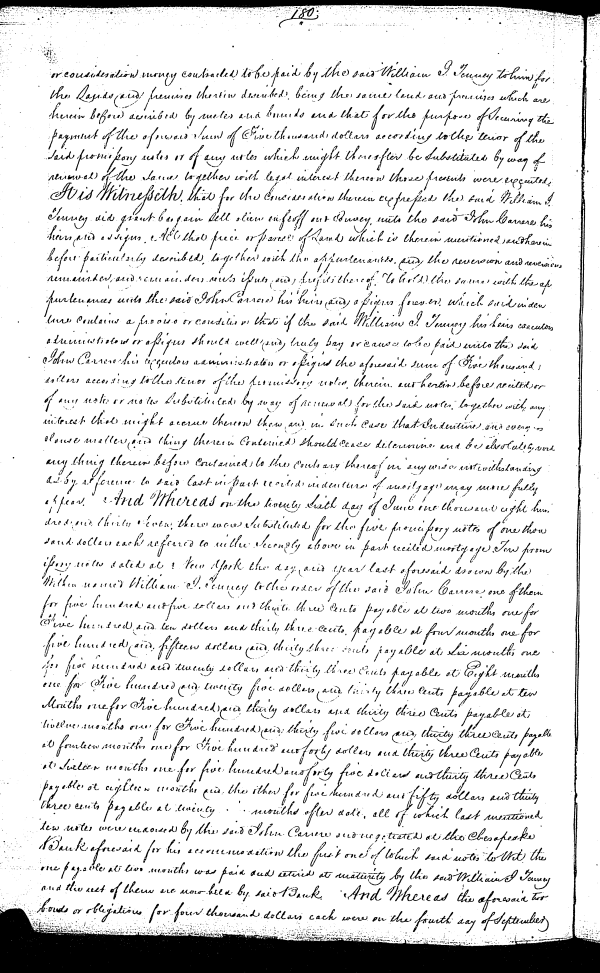 180.
or consideration money contracted to be paid by the said William I. Tenney to him for
the Lands and premises therein described, being the same land and premises which are
herein before described by metes and bounds and that for the purpose of Securing the
payment of the aforesaid Sum of Five thousand dollars according to the tenor of the
said promissory notes or of any notes which might thereafter be Substituted by way of
renewal of the Same together with legal interest thereon those presents were executed.
It is Witnesseth, that for the Consideration therein expressed the said William I.
Tenney did grant bargain Sell alien enfeoff and Convey unto the said John Carrere his
heirs and assigns, All that piece or parcel of Land which is therein mentioned and herein
before particularly described, together with the appurtenances, and the reversion and reversions
remainder, and remainders rents issues and profits thereof, To hold the same with the ap
purtenances unto the said John Carrere his heirs and assigns forever, which said inden
ture contains a proviso or condition that if the said William I. Tenney his heirs executors
administrators or assigns should well and truly pay or cause to be paid unto the said
John Carrere his executors administrators or assigns the aforesaid sum of Five thousand
dollars according to the tenor of the promissory notes, therein and herein before recited or
of any note or notes Substituted by way of renewal for the said notes, together with any
interest that might accrue thereon then and in such Case that Indenture and every
clause matter and thing therein Contained should cease determine and be absolutely void
any thing therein before contained to the contrary thereof in any wise notwithstanding
as by reference to said last in part recited indenture of mortgage may more fully
appear. And Whereas on the twenty Sixth day of June one thousand eight hun
dred and thirty seven, there were Substituted for the five promissory notes of one thou
sand dollars each referred to in the Secondly above in part recited mortgage Ten prom
issory notes dated at New York the day and year last aforesaid drawn by the
Within named William I. Tenney to the order of the said John Carrere, one of them
for five hundred and five dollars and thirty three Cents payable at two months one for
Five hundred and ten dollars and thirty three Cents, payable at four months one for
five hundred and fifteen dollars and thirty three Cents payable at Six months one
for five hundred and twenty dollars and thirty three Cents payable at Eight months
one for Five hundred and twenty five dollars and thirty three Cents payable at ten
Months one for Five hundred and thirty dollars and thirty three Cents payable at
twelve months one for Five hundred and thirty five dollars and thirty three Cents payable
at fourteen months one for Five hundred and forty dollars and thirty three Cents payable
at Sixteen months one for five hundred and forty five dollars and thirty three Cents
payable at eighteen months and the other for five hundred and fifty dollars and thirty
three cents payable at twenty months after date, all of which last mentioned
ten notes were endorsed by the said John Carrere and negotiated at the Chesapeake
Bank aforesaid for his accommodation the first one of which said notes to Wit the
one payable at two months was paid and retired at maturity by the said William I. Tenney
and the rest of them are now held by said Bank And Whereas the aforesaid two
bonds or obligations for four thousand dollars each were on the fourth day of September